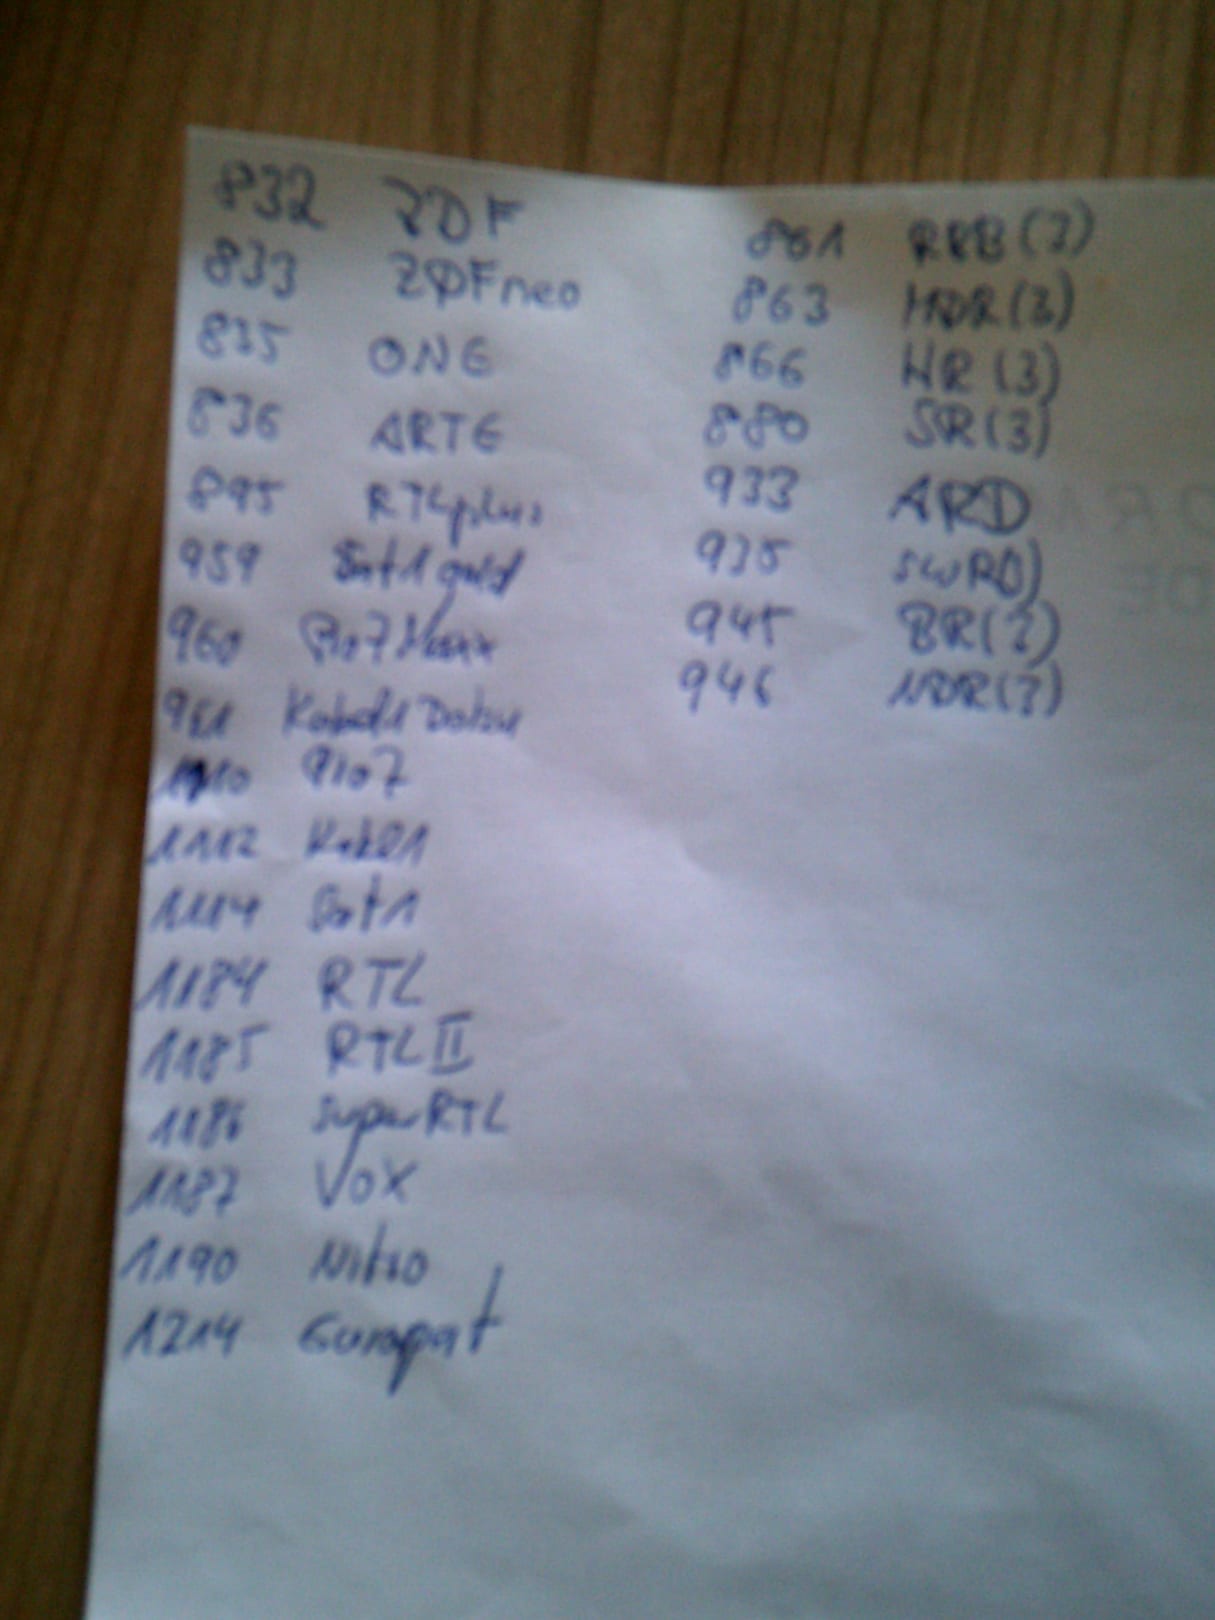 832 ZDF
833 ZDFneo
835 ONE
836 ARTE
895 RTLplus
959 Sat1 gold
960 Pro7 Maxx
961 Kabel1 Doku
1110 Pro7
1112 Kabel1
1114 Sat1
1184 RTL
1185 RTL II
1186 SuperRTL
1187 VOX
1190 Nitro
1214
861 RBB (3)
863 MDR (3)
866 HR (3)
880 SR (3)
933 ARD
935
945 BR (3)
946 NDR (3)